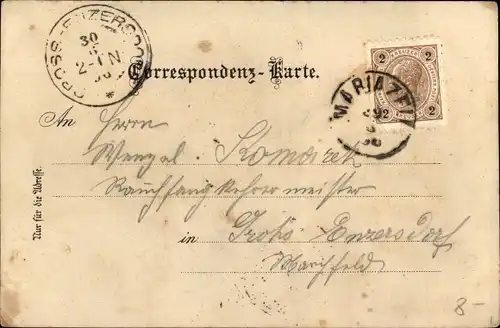 GROSS-ENZERSDORF
30
2-1N
Correspondenz-Karte.
2 KREUZER 2
2 2
MARIAZELL
An Herrn
Wenzel Komarek
Rauchfangkehrermeister
in Groß Enzersdorf
Marchfeld
Nur für die Adresse.
8-